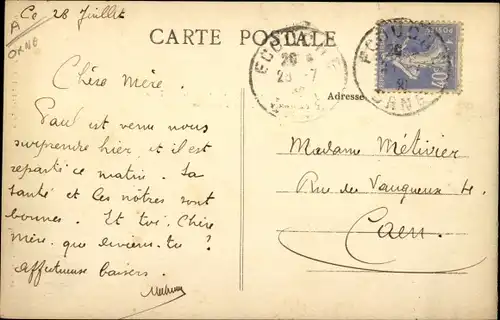 A
ORNE
Ce 28 Juillet
CARTE POSTALE
Chère Mère.
Paul est venu nous
surprendre hier et il est
reparti ce matin. Sa
santé et les nôtres sont
bonnes. Et toi Chère
Mère que deviens-tu ?
affectueuse baisers.
Adresse
Madame Métivier
Rue du Vaugueux 4.
Caen.
ECOUCHÉ
28 - 7
ECOUCHÉ
ORNE
POSTES
40